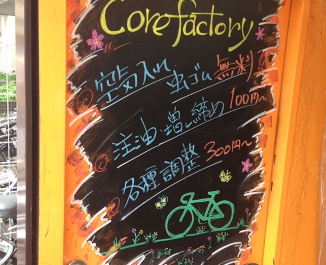 Core factory
空気入れ 無料
虫ゴム 100円〜
注油・増し締め
各種調整 300円〜